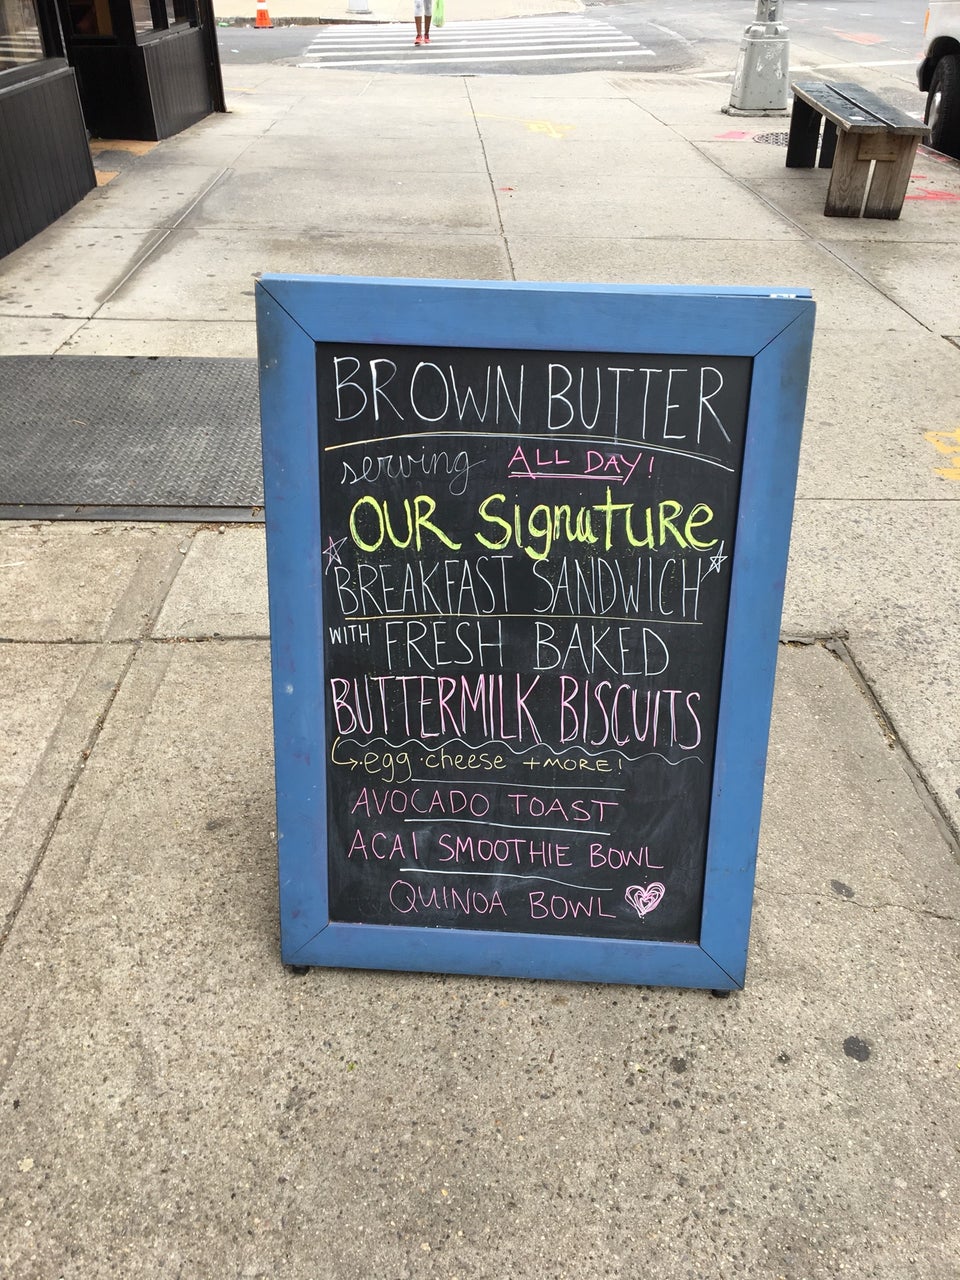 BROWN BUTTER
serving ALL DAY!
OUR Signature
BREAKFAST SANDWICH
WITH FRESH BAKED
BUTTERMILK BISCUITS
egg · cheese + MORE!
AVOCADO TOAST
ACAI SMOOTHIE BOWL
QUINOA BOWL